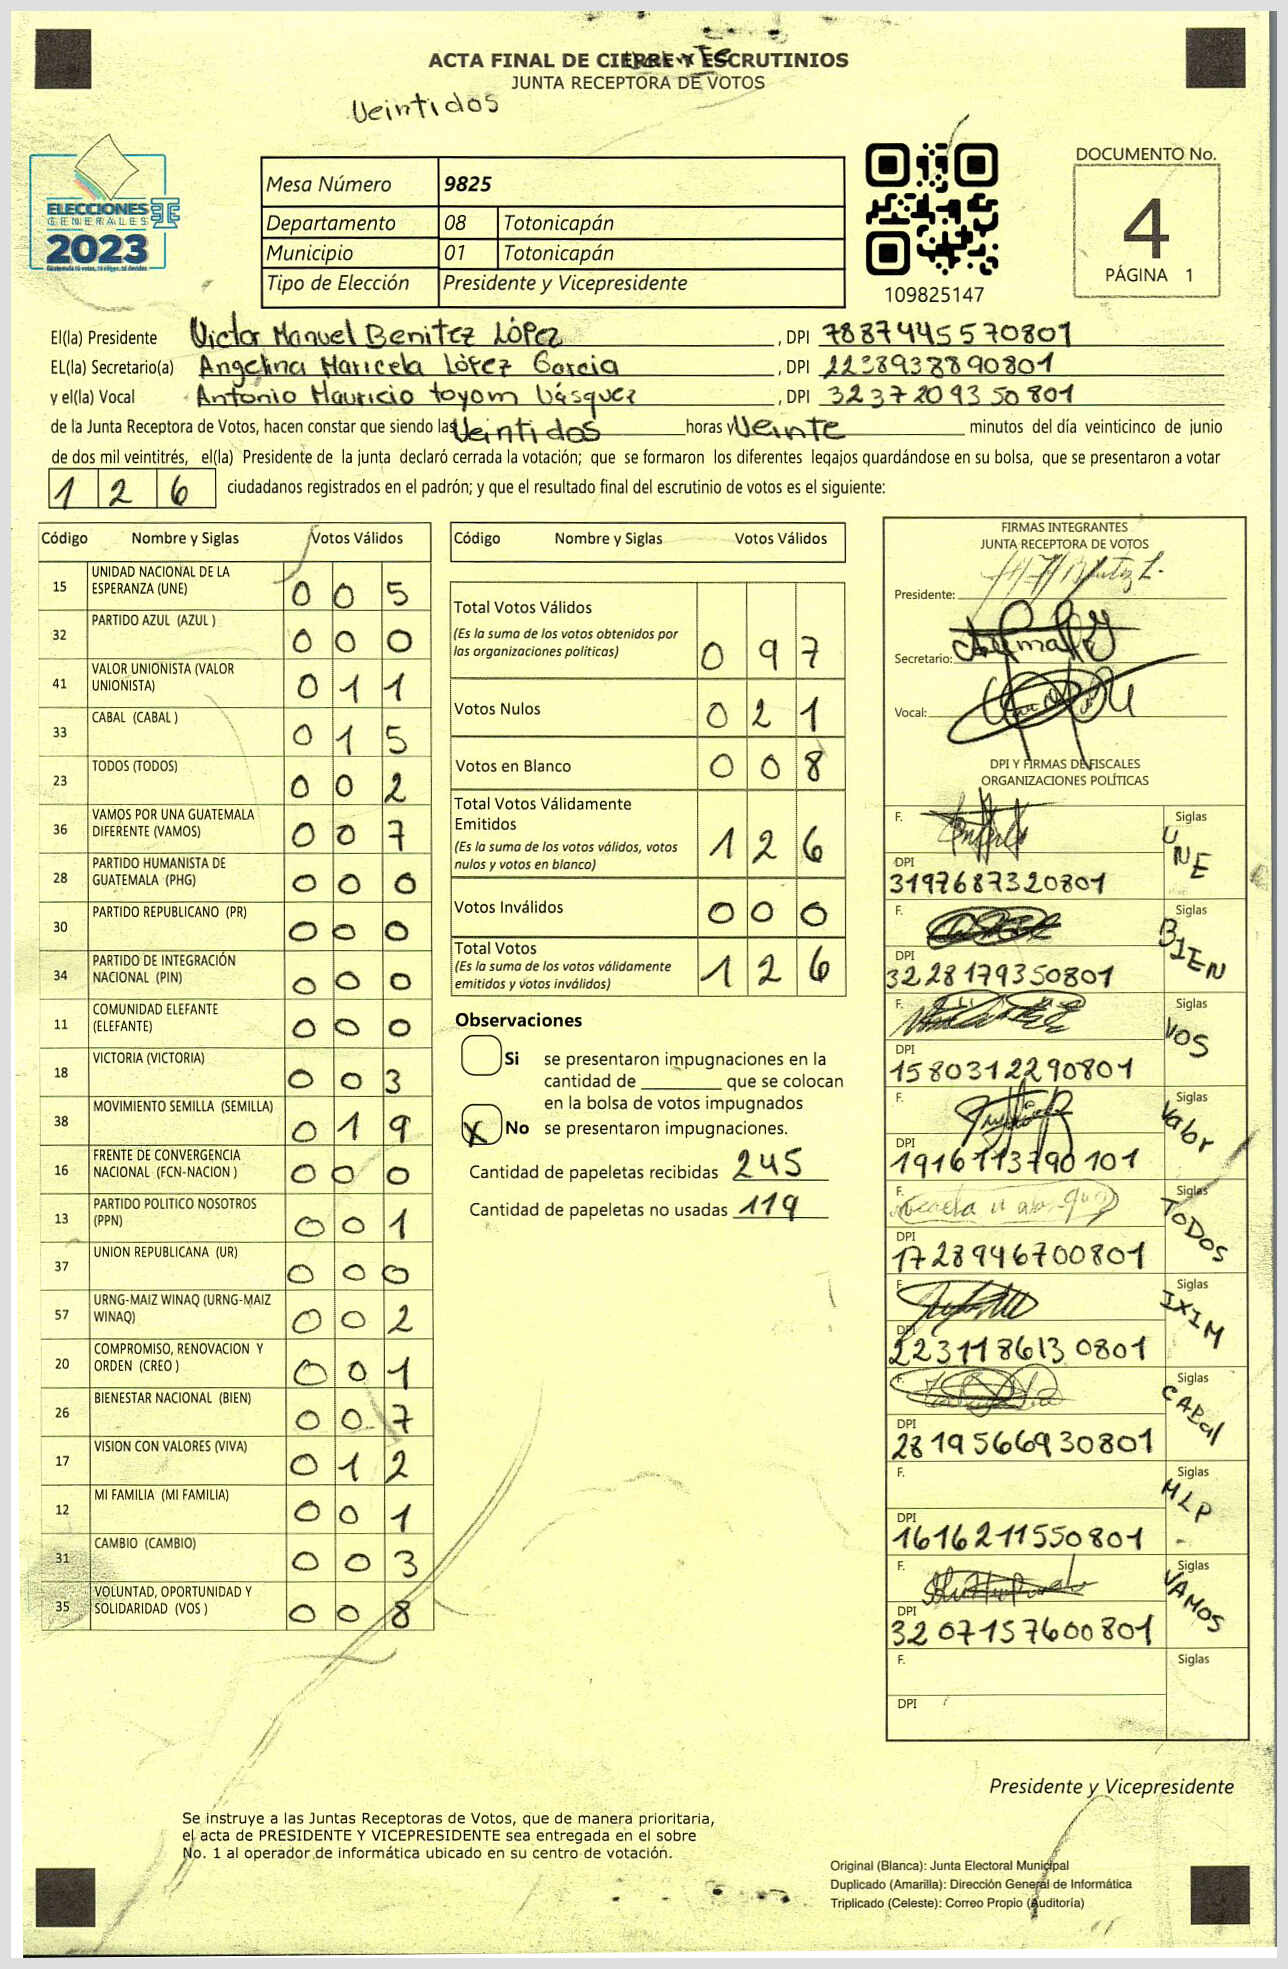 ACTA FINAL DE CIERRE Y ESCRUTINIOS
JUNTA RECEPTORA DE VOTOS
Veintidos
ELECCIONES
GENERALES
2023
Mesa Número 9825
Departamento 08 Totonicapán
Municipio 01 Totonicapán
Tipo de Elección Presidente y Vicepresidente
109825147
DOCUMENTO No.
4
PÁGINA 1
El(la) Presidente Victor Manuel Benitez López, DPI 7887445570801
EL(la) Secretario(a) Angelina Maricela López Garcia, DPI 2238938890801
y el(la) Vocal Antonio Mauricio toyom Vásquez, DPI 3237209350801
de la Junta Receptora de Votos, hacen constar que siendo las Veintidos horas y Veinte minutos del día veinticinco de junio
de dos mil veintitrés, el(la) Presidente de la junta declaró cerrada la votación; que se formaron los diferentes legajos guardándose en su bolsa, que se presentaron a votar
126 ciudadanos registrados en el padrón; y que el resultado final del escrutinio de votos es el siguiente:
Código Nombre y Siglas Votos Válidos
15 UNIDAD NACIONAL DE LA ESPERANZA (UNE) 005
32 PARTIDO AZUL (AZUL ) 000
41 VALOR UNIONISTA (VALOR UNIONISTA) 011
33 CABAL (CABAL ) 015
23 TODOS (TODOS) 002
36 VAMOS POR UNA GUATEMALA DIFERENTE (VAMOS) 007
28 PARTIDO HUMANISTA DE GUATEMALA (PHG) 000
30 PARTIDO REPUBLICANO (PR) 000
34 PARTIDO DE INTEGRACIÓN NACIONAL (PIN) 000
11 COMUNIDAD ELEFANTE (ELEFANTE) 000
18 VICTORIA (VICTORIA) 003
38 MOVIMIENTO SEMILLA (SEMILLA) 019
16 FRENTE DE CONVERGENCIA NACIONAL (FCN-NACION ) 000
13 PARTIDO POLITICO NOSOTROS (PPN) 001
37 UNION REPUBLICANA (UR) 000
57 URNG-MAIZ WINAQ (URNG-MAIZ WINAQ) 002
20 COMPROMISO, RENOVACION Y ORDEN (CREO ) 001
26 BIENESTAR NACIONAL (BIEN) 007
17 VISION CON VALORES (VIVA) 012
12 MI FAMILIA (MI FAMILIA) 001
31 CAMBIO (CAMBIO) 003
35 VOLUNTAD, OPORTUNIDAD Y SOLIDARIDAD (VOS ) 008
Código Nombre y Siglas Votos Válidos
Total Votos Válidos 097
(Es la suma de los votos obtenidos por
las organizaciones políticas)
Votos Nulos 021
Votos en Blanco 008
Total Votos Válidamente
Emitidos 126
(Es la suma de los votos válidos, votos
nulos y votos en blanco)
Votos Inválidos 000
Total Votos 126
(Es la suma de los votos válidamente
emitidos y votos inválidos)
Observaciones
Si se presentaron impugnaciones en la
cantidad de ________ que se colocan
en la bolsa de votos impugnados
X No se presentaron impugnaciones.
Cantidad de papeletas recibidas 245
Cantidad de papeletas no usadas 119
FIRMAS INTEGRANTES
JUNTA RECEPTORA DE VOTOS
Presidente:
Secretario:
Vocal:
DPI Y FIRMAS DE FISCALES
ORGANIZACIONES POLÍTICAS
F. Siglas UNE
DPI 3197687320801
F. Siglas BIEN
DPI 3228179350801
F. Siglas VOS
DPI 1580312290801
F. Siglas Valor
DPI 1916113790101
F. Siglas TODOS
DPI 1728946700801
F. Siglas IXIM
DPI 2231186130801
F. Siglas CABal
DPI 2819566930801
F. Siglas MLP
DPI 1616211550801
F. Siglas VAMOS
DPI 3207157600801
F. Siglas
DPI
Presidente y Vicepresidente
Se instruye a las Juntas Receptoras de Votos, que de manera prioritaria,
el acta de PRESIDENTE Y VICEPRESIDENTE sea entregada en el sobre
No. 1 al operador de informática ubicado en su centro de votación.
Original (Blanca): Junta Electoral Municipal
Duplicado (Amarilla): Dirección General de Informática
Triplicado (Celeste): Correo Propio (Auditoría)